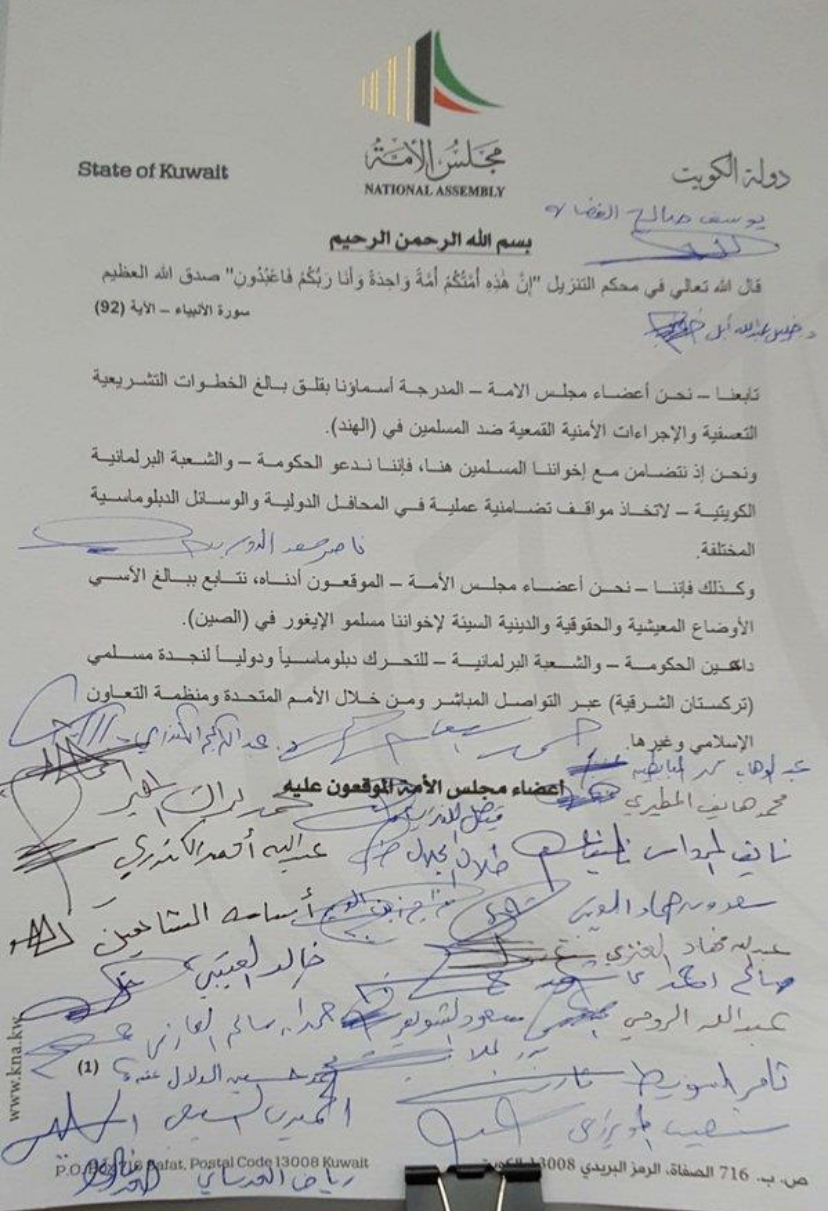 دولة الكويت
State of Kuwait
مجلس الأمة
NATIONAL ASSEMBLY
يوسف صالح الفضالة
بسم الله الرحمن الرحيم
قال الله تعالي في محكم التنزيل "إِنَّ هَٰذِهِ أُمَّتُكُمْ أُمَّةً وَاحِدَةً وَأَنَا رَبُّكُمْ فَاعْبُدُونِ" صدق الله العظيم
سورة الأنبياء – الآية (92)
د. خليل عبدالله أبل
تابعنا – نحن أعضاء مجلس الامة – المدرجة أسماؤنا بقلق بالغ الخطوات التشريعية
التعسفية والإجراءات الأمنية القمعية ضد المسلمين في (الهند).
ونحن إذ نتضامن مع إخواننا المسلمين هنا، فإننا ندعو الحكومة – والشعبة البرلمانية
الكويتية – لاتخاذ مواقف تضامنية عملية في المحافل الدولية والوسائل الدبلوماسية
المختلفة.
ناصر سعد الدوسري
وكذلك فإننا – نحن أعضاء مجلس الأمة – الموقعون أدناه، نتابع ببالغ الأسي
الأوضاع المعيشية والحقوقية والدينية السيئة لإخواننا مسلمو الإيغور في (الصين).
داعين الحكومة – والشعبة البرلمانية – للتحرك دبلوماسياً ودولياً لنجدة مسلمي
(تركستان الشرقية) عبر التواصل المباشر ومن خلال الأمم المتحدة ومنظمة التعاون
الإسلامي وغيرها.
عبدالكريم الكندري
عبدالوهاب محمد البابطين
أعضاء مجلس الأمة الموقعون عليه
محمد هايف المطيري
محمد براك المطير
نايف المرداس
طلال الجلال
عبدالله أحمد الكندري
سعدون حماد
أسامه الشاهين
عبدالله فهاد العنزي
خالد العتيبي
صالح عاشور
عبدالله الرومي
حمدان سالم العازمي
(1)
ثامر السويط
محمد حسين الدلال
شعيب المويزري
الحميدي السبيعي
رياض العدساني
www.kna.kw
P.O.Box 716 Safat, Postal Code 13008 Kuwait
ص. ب. 716 الصفاة، الرمز البريدي 13008 الكويت